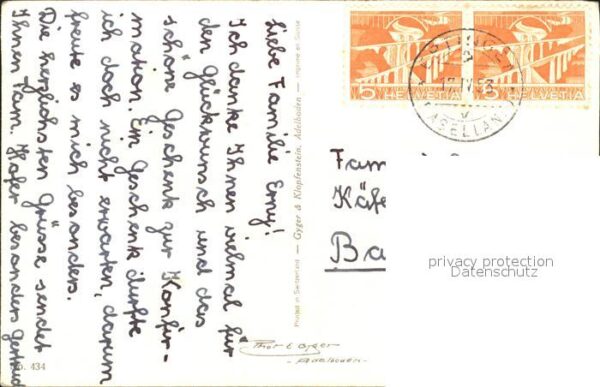 Liebe Familie Erny!
Ich danke Ihnen vielmal für
den Glückwunsch und das
schöne Geschenk zur Konfir-
mation. Ein Geschenk durfte
ich doch nicht erwarten, darum
freute es mich besonders.
Die herzlichsten Grüsse sendet
Ihnen Fam. Hofer besonders Gertrud
No. 434
Printed in Switzerland — Gyger & Klopfenstein, Adelboden — Imprimé en Suisse
Photo Gyger
ADELBODEN
5 HELVETIA
5 HELVETIA
17.IV.53
Fam
Käfe
Ba
privacy protection
Datenschutz